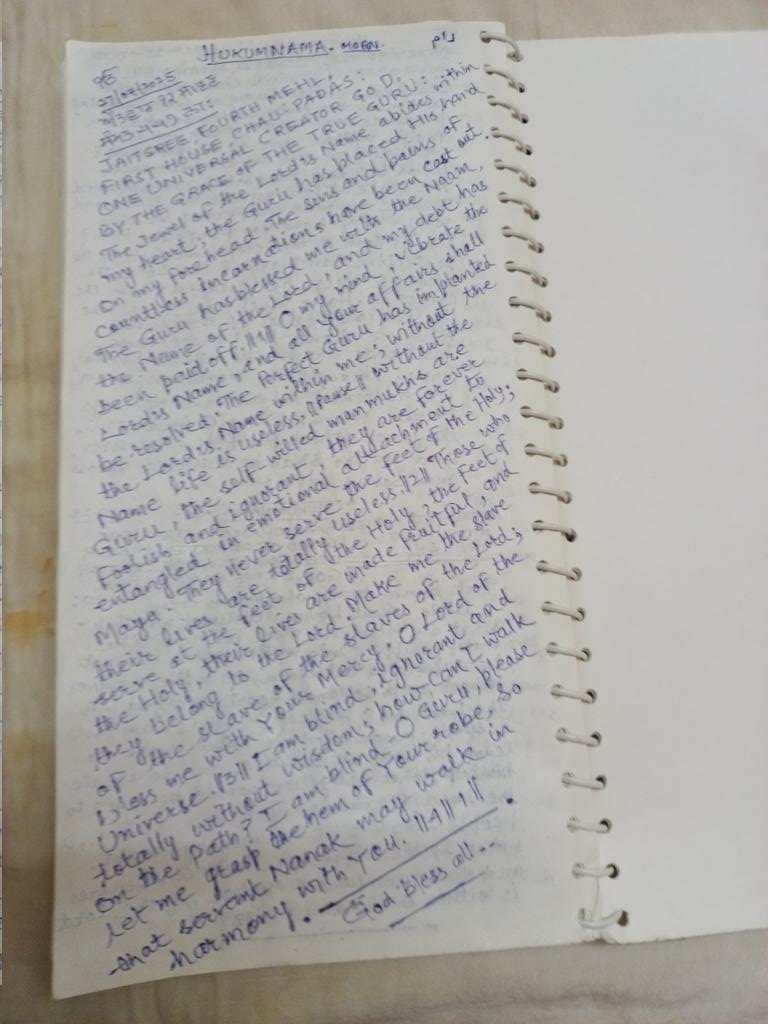 HUKUMNAMA. MORN.
رام
ੴ
27/07/2025
JAITSREE, FOURTH MEHL,
FIRST HOUSE, CHAU-PADAS:
ONE UNIVERSAL CREATOR GOD.
BY THE GRACE OF THE TRUE GURU:
The Jewel of the Lord's Name abides within
my heart; the Guru has placed His hand
on my forehead. The sins and pains of
countless incarnations have been cast out.
The Guru has blessed me with the Naam,
the Name of the Lord, and my debt has
been paid off. ||1|| O my mind, vibrate the
Lord's Name, and all your affairs shall
be resolved. The Perfect Guru has implanted
the Lord's Name within me; without the
Name life is useless. ||Pause|| without the
Guru, the self-willed manmukhs are
foolish and ignorant; they are forever
entangled in emotional attachment to
Maya. They never serve the feet of the Holy;
their lives are totally useless. ||2|| Those who
serve at the feet of the Holy, the feet of
the Holy, their lives are made fruitful, and
they belong to the Lord. Make me the slave
of the slave of the slaves of the Lord;
Bless me with Your Mercy, O Lord of the
Universe. ||3|| I am blind, ignorant and
totally without wisdom; how can I walk
on the path? I am blind - O Guru, please
let me grasp the hem of Your robe, so
that servant Nanak may walk in
harmony with You. ||4||1||
God Bless all..